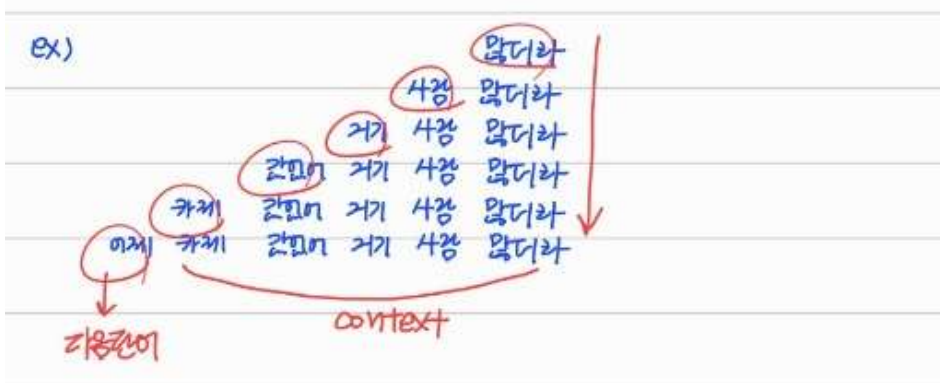 ex)
많더라
사람 많더라
거기 사람 많더라
갔었어 거기 사람 많더라
카페 갔었어 거기 사람 많더라
어제 카페 갔었어 거기 사람 많더라
context
다음단어